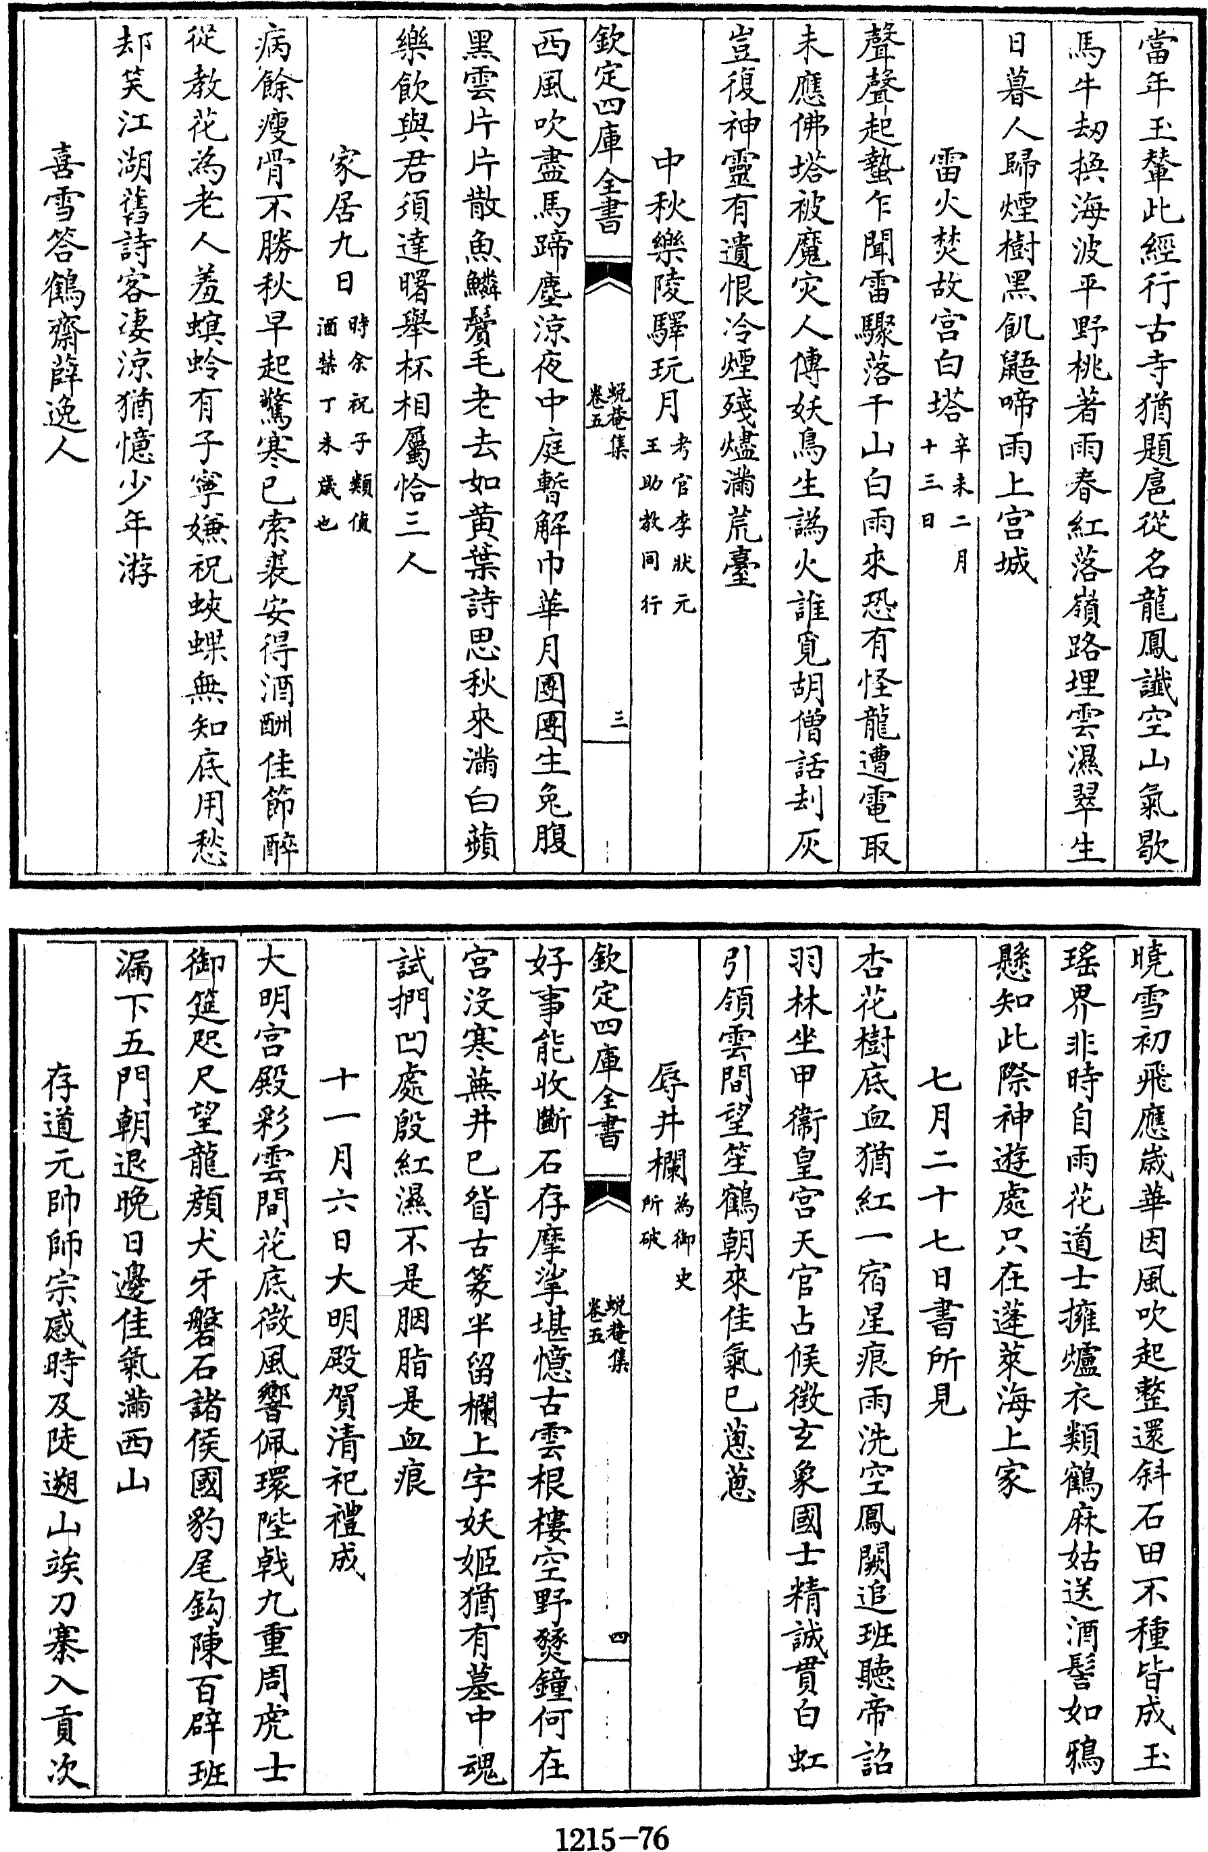 當年玉輦此經行古寺猶題扈從名龍鳳讖空山氣歇
馬牛刼換海波平野桃著雨春紅落嶺路埋雲濕翠生
日暮人歸煙樹黑飢鼯啼雨上宫城
雷火焚故宫白塔辛未二月
十三日
聲聲起蟄乍聞雷驟落千山白雨來恐有怪龍遭電取
未應佛塔被魔灾人傳妖鳥生譌火誰覓胡僧話刦灰
豈復神靈有遺恨冷煙殘燼滿荒臺
中秋樂陵驛玩月考官李狀元
王助教同行
欽定四庫全書
蜕菴集
卷五
三
西風吹盡馬蹄塵涼夜中庭暫解巾華月團團生兔腹
黑雲片片散魚鱗鬢毛老去如黄葉詩思秋來滿白蘋
樂飲與君須達曙舉杯相屬恰三人
家居九日時余祝子類偵
酒禁丁未歲也
病餘瘦骨不勝秋早起驚寒已索裘安得酒酬佳節醉
從教花為老人羞螟蛉有子寧嫌祝蛺蝶無知底用愁
却笑江湖舊詩客凄涼猶憶少年游
喜雪答鶴齋薛逸人
曉雪初飛應歲華因風吹起整還斜石田不種皆成玉
瑤界非時自雨花道士擁爐衣類鶴麻姑送酒髻如鴉
懸知此際神遊處只在蓬萊海上家
七月二十七日書所見
杏花樹底血猶紅一宿星痕雨洗空鳳闕追班聽帝詔
羽林坐甲衞皇宫天官占候徴玄象國士精誠貫白虹
引領雲間望笙鶴朝來佳氣已蔥蔥
辱井欄為御史
所破
欽定四庫全書
蜕菴集
卷五
四
好事能收斷石存摩挲堪憶古雲根樓空野燹鐘何在
宫沒寒蕪井已眢古篆半留欄上字妖姬猶有墓中魂
試捫凹處殷紅濕不是胭脂是血痕
十一月六日大明殿賀清祀禮成
大明宫殿彩雲間花底微風響佩環陛戟九重周虎士
御筵咫尺望龍顔犬牙磐石諸侯國豹尾鈎陳百辟班
漏下五門朝退晚日邊佳氣滿西山
存道元帥師宗感時及陡遡山㑨刀寨入貢次
1215-76